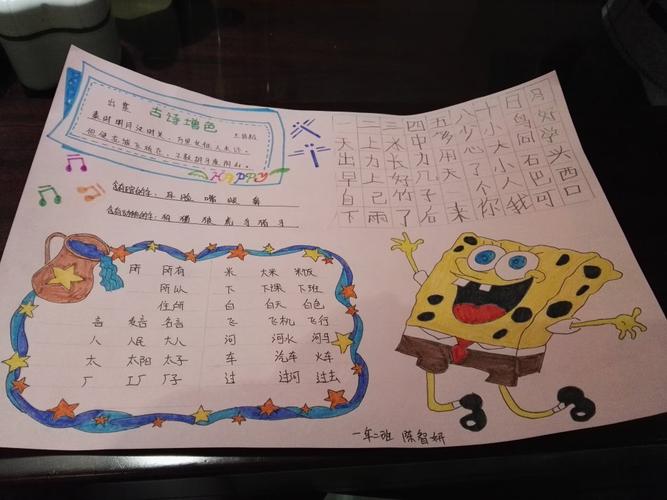 古诗增色
出塞
王昌龄
秦时明月汉时关，万里长征人未还。
但使龙城飞将在，不教胡马度阴山。
HAPPY
脸 嘴 眼 鼻
动物的字：狗 猫 狼 虎
一 二 三 四 五 八 十 日 月
天 上 水 中 多 少 小 鸟 好
出 力 长 九 用 心 大 同 学
早 上 好 儿 天 了 小 石 头
自 己 竹 子 个 人 巴 西
下 雨 了 后 来 你 我 可 口
所 所有 米 大米 米饭
所以 下 下课 下班
住所 白 白天 白色
音 发音 飞 飞机 飞行
人 人民 大人 河 河水 河马
太 太阳 太子 车 汽车 火车
厂 工厂 厂子 过 过河 过去
一年二班 陈智妍